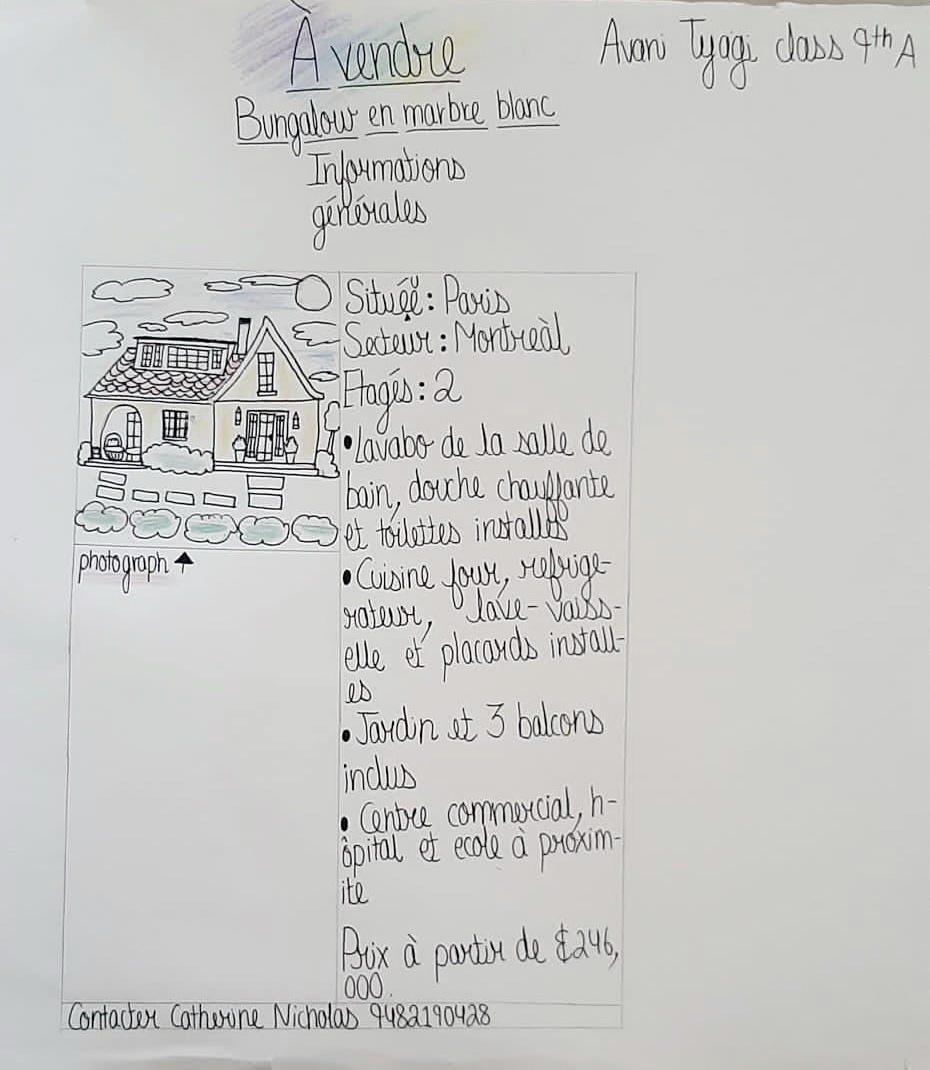 À vendre
Avani Tyagi class 9th A
Bungalow en marbre blanc
Informations
générales
Située: Paris
Secteur: Montreàl
Etagés: 2
•Lavabo de la salle de
bain, douche chauffante
et toilettes installés
•Cuisine four, refrige-
rateur, lave-vaiss-
elle et placards install-
es
•Jardin et 3 balcons
inclus
• Centre commercial, h-
ôpital et ecole à proxim-
ite
Prix à partir de $246,
000.
photograph ↑
Contacter Catherine Nicholas 9482190428